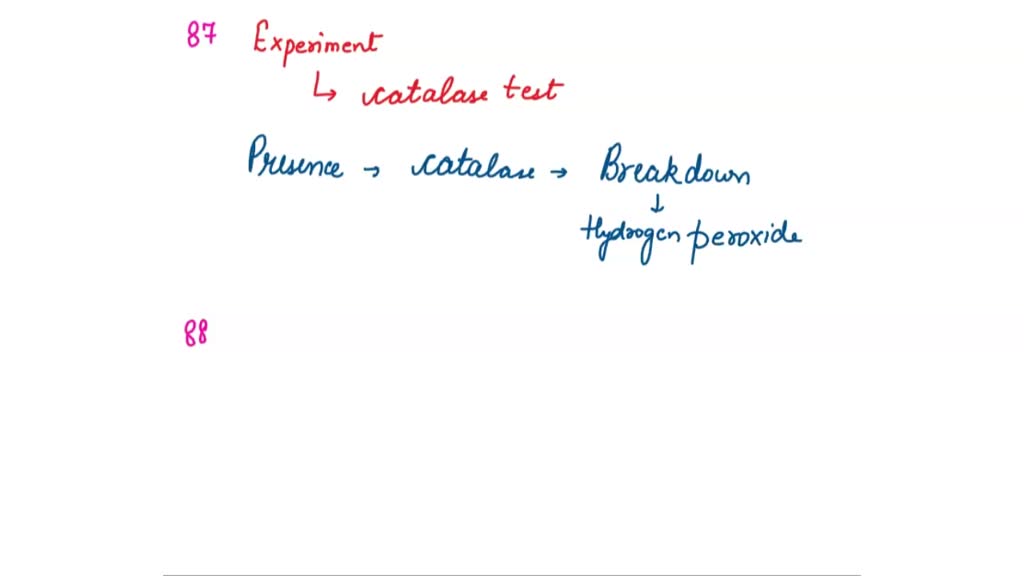 87 Experiment
↳ catalase test
Presence → catalase → Breakdown
↓
Hydrogen peroxide
88